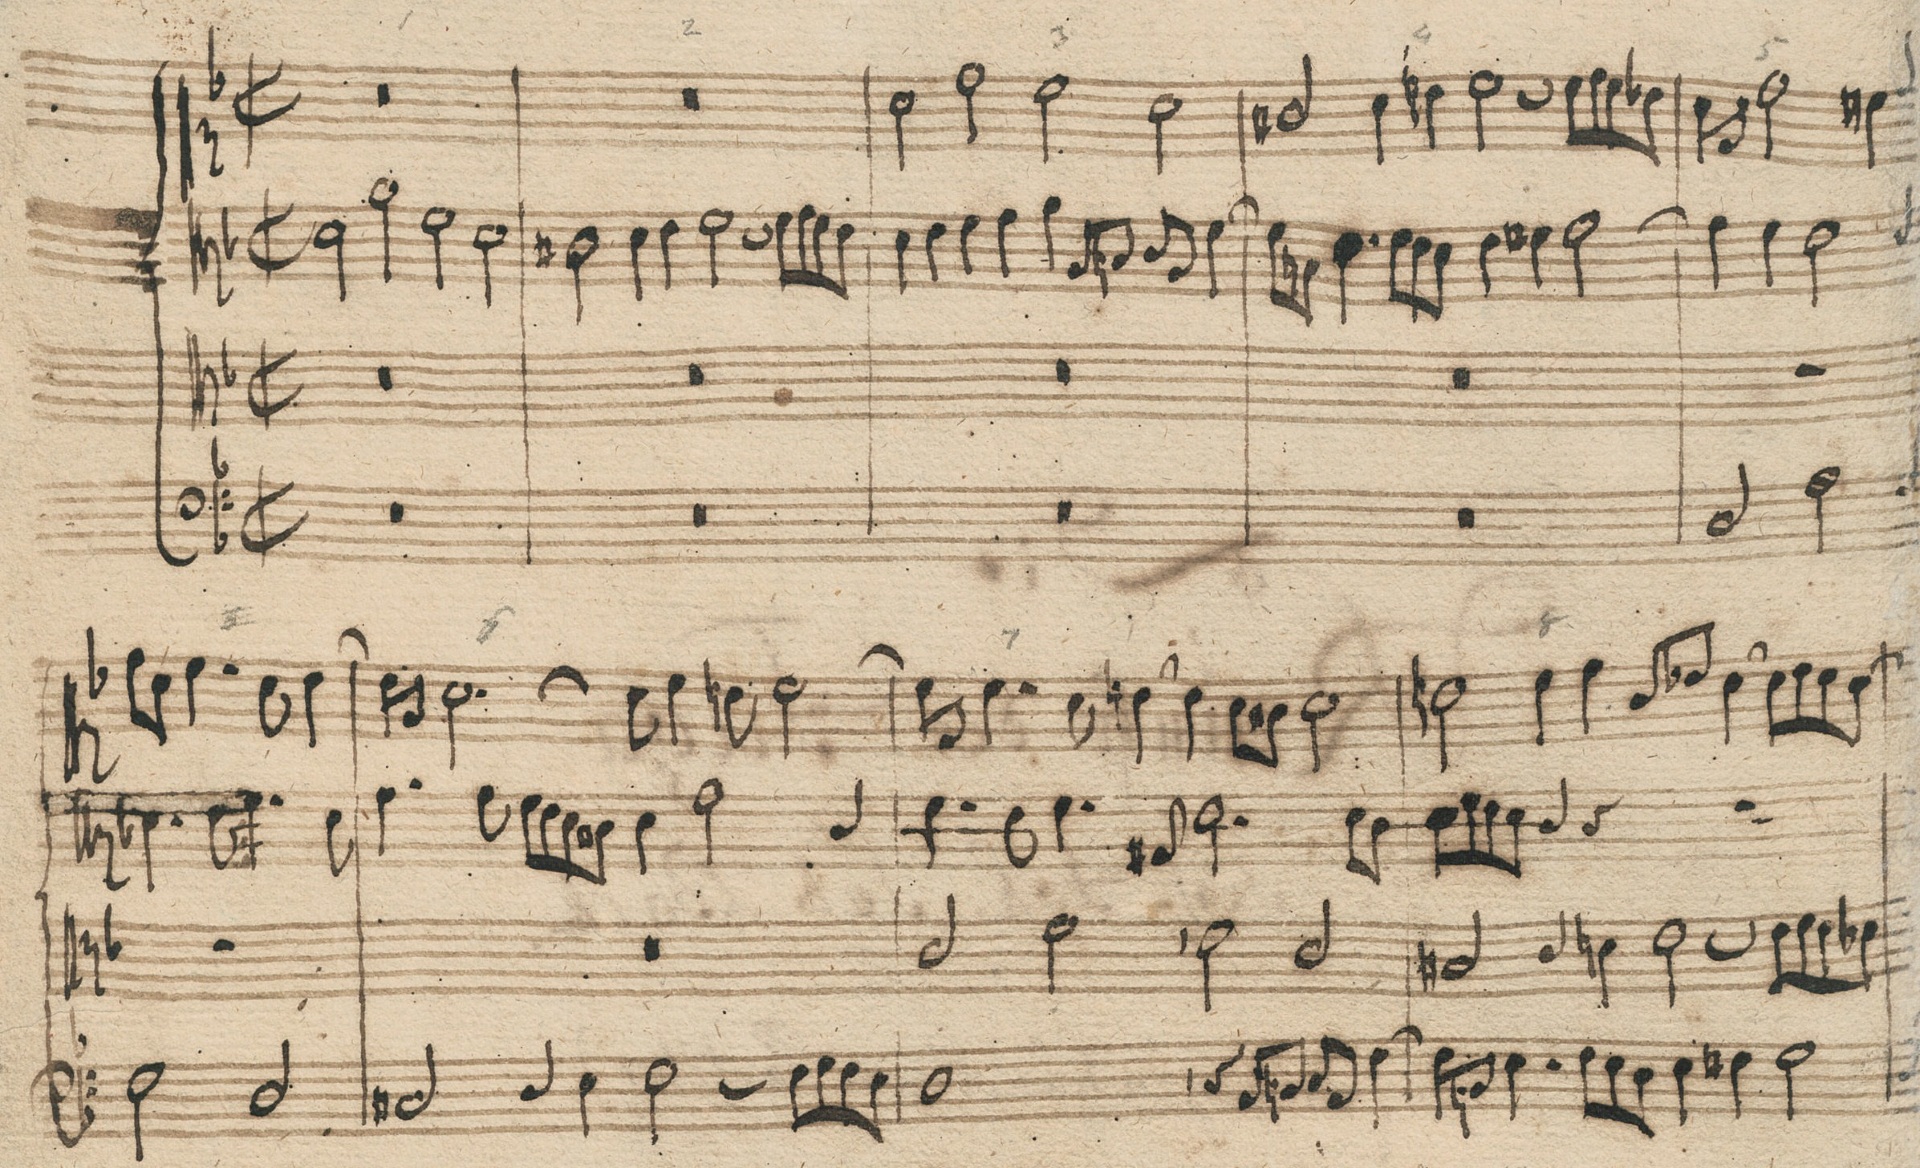 1 2 3 4 5
6 7 8